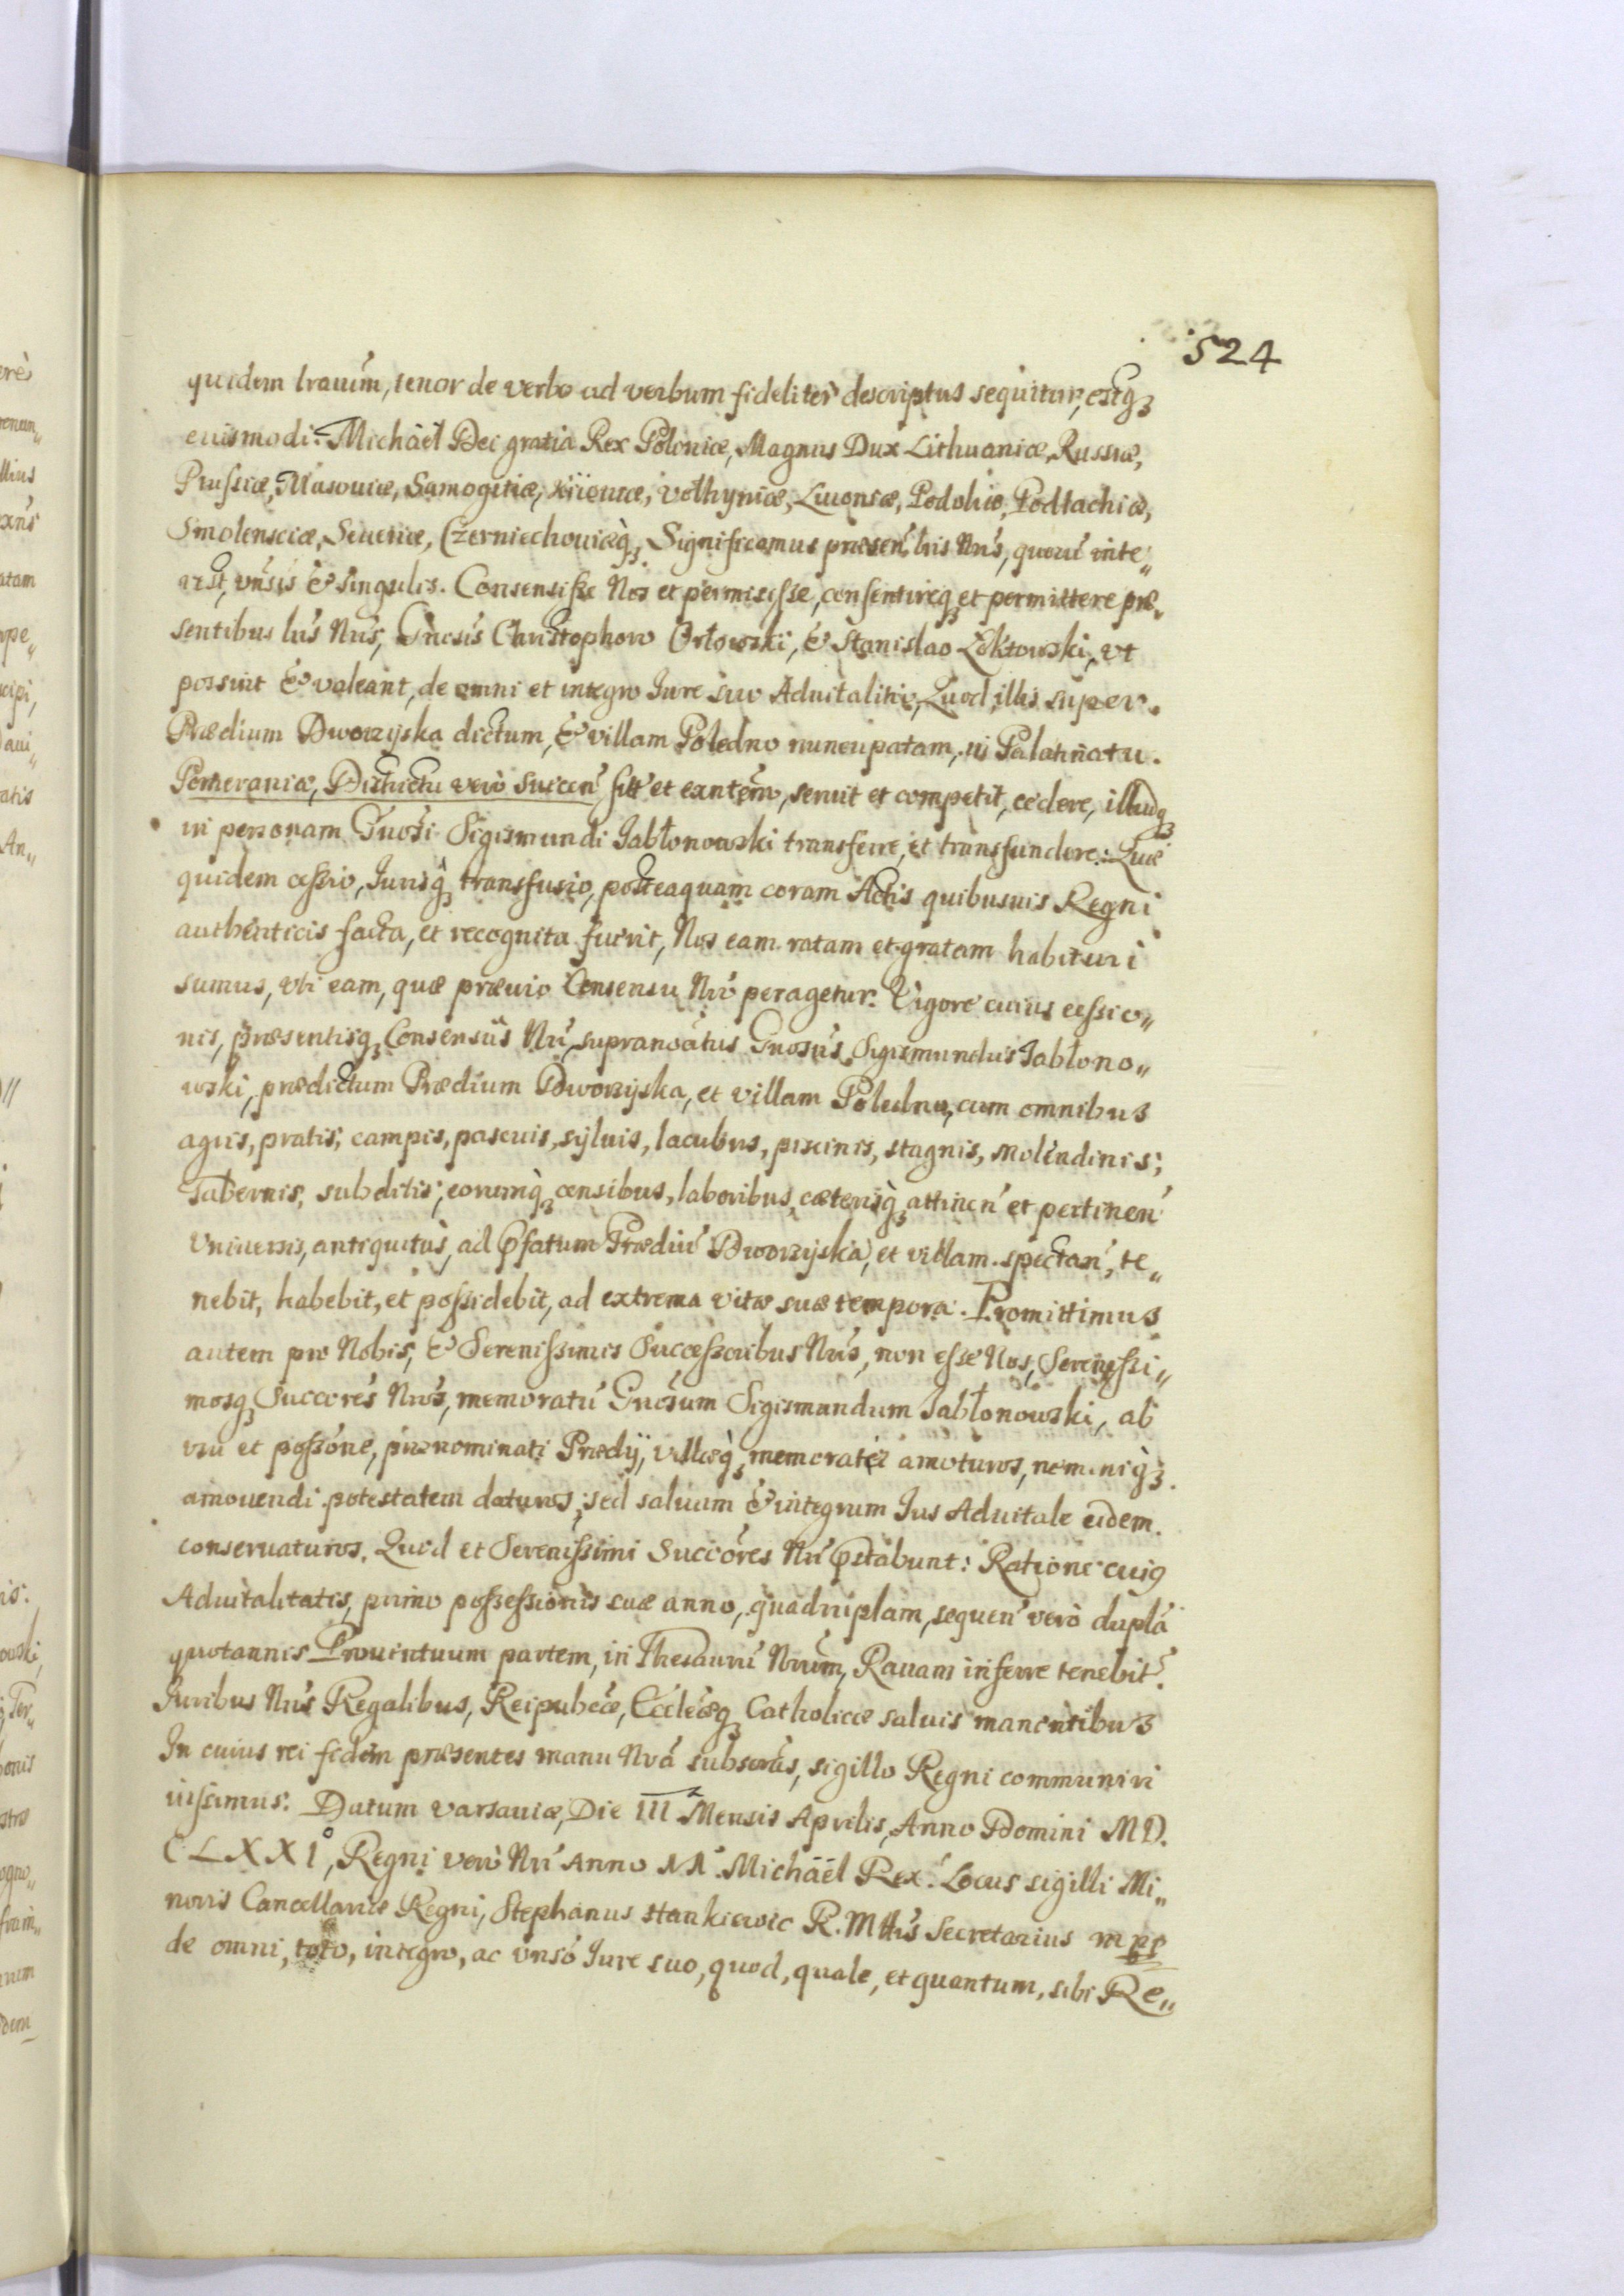 524
quidem lrarum, tenor de verbo ad verbum fideliter descriptus sequitur, estq3
euismodi: Michaël Dei gratia Rex Poloniæ, Magnus Dux Lithuaniæ, Russiæ,
Prussiæ, Masouiæ, Samogitiæ, Kiiouiæ, Volhyniæ, Liuoniæ, Podoliæ, Podlachiæ,
Smolensciæ, Seueriæ, Czerniechouiæq3, Significamus præsen lris Nris, quorū inte„
rest, vnsis & singulis. Consensisse Nos et permisisse, consentireq3 et permittere præ„
sentibus lris Nris, Gnosis Christophoro Orłowski, & Stanislao Łoktowski, vt
possint & valeant, de omni et integro Iure suo Aduitalitio, Quod illis super
Prædium Dworzyska dictum, & villam Poledno nuncupatam, in Palatinatu
Pomeraniæ, Districtu verò Suecen sitt et exntem, seruit et competit, cedere, illudq3
in personam Gnosi Sigismundi Jabłonowski transferre, et transfundere: Quæ
quidem cessio, Jurisq3 transfusio, posteaquam coram Actis quibusuis Regni
authenticis facta, et recognita fuerit, Nos eam ratam et gratam habituri
sumus, vti eam, quæ præuio Consensu Nro peragetur. Vigore cuius cessio„
nis, præsentisq3 Consensûs Nri, supranoatus Gnosus Sigismundus Jabłono„
wski, prædictum Prædium Dworzyska, et villam Poledno, cum omnibus
agris, pratis, campis, pascuis, syluis, lacubus, piscinis, stagnis, molendinis,
Tabernis, subditis, eorumq3 censibus, laboribus, cæterisq3 attinen et pertinen
Vniuersis, antiquitùs, ad pfatum Prædiū Dworzyska, et villam spectan, te„
nebit, habebit, et possidebit, ad extrema vitæ suæ tempora. Promittimus
autem pro Nobis, & Serenissimis Successoribus Nris, non esse Nos, Serenissi„
mosq3 Succores Nros, memoratū Gnosum Sigismundum Jabłonowski, ab
vsu et possone, prænominati Prædij, villæq3 memoratæ amoturos, neminiq3
amouendi potestatem daturos, sed saluum & integrum Jus Aduitale eidem
conseruaturos. Quod et Serenissimi Succores Nri pstabunt: Ratione cuig
Aduitalitatis, primo possessionis suæ anno, quadruplam, sequen verò duplā
quotannis Prouentuum partem, in Thesaurū Nrum, Rauam inferre tenebit.
Juribus Nris Regalibus, Reipubcæ, Eccleæq3 Catholicæ saluis manentibus
In cuius rei fidem præsentes manu Nra subscras, sigillo Regni communiri
iussimus. Datum Varsauiæ, Die III Mensis Aprilis, Anno Domini MD.
CLXXI°, Regni verò Nri Anno II. Michaël Rex. Locus sigilli Mi„
noris Cancellariæ Regni, Stephanus Stankiewic R. Mttis Secretarius mpp
de omni, toto, integro, ac vnso Iure suo, quod, quale, et quantum, sibi Re„